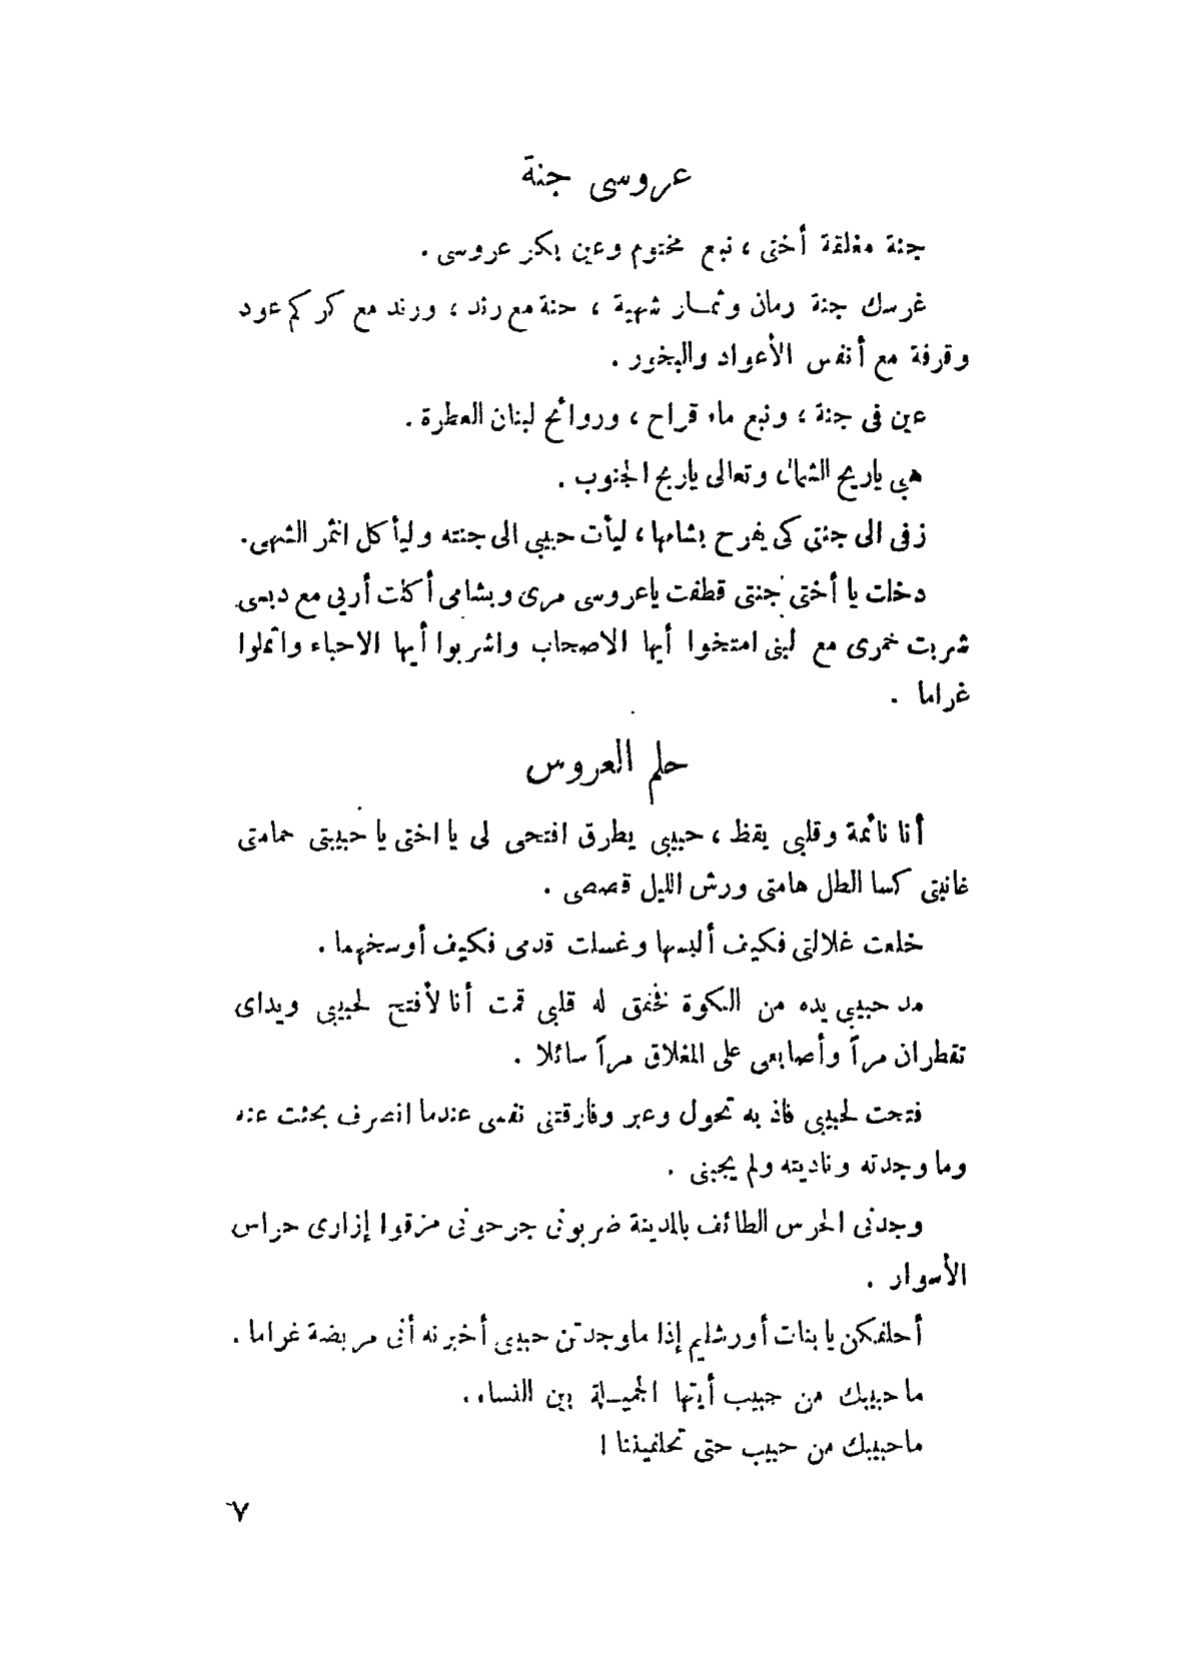 عروسى جنة
جنة مغلقة أختى ، نبع مختوم وعين بكر عروسى .
غرسك جنة رمان وثمـار شهية ، حنة مع رند ، ورند مع كركم عود
وقرفة مع أنفس الأعواد والبخور .
عين فى جنة ، ونبع ماء قراح ، وروائح لبنان العطرة .
هبى ياريح الشمال وتعالى ياريح الجنوب .
زفى الى جنتى كى يفرح بشامها ، ليأت حبيبى الى جنته وليأكل الثمر الشهى .
دخلت يا أختى جنتى قطفت ياعروسى مرى وبشامى أكلت أربى مع دبسى
شربت خمرى مع لبنى امتخوا أيها الاصحاب واشربوا أيها الاحباء واثملوا
غراما .
حلم العروس
أنا نائمة وقلبى يقظ ، حبيبى يطرق افتحى لى يا اختى يا حبيبتى حمامتى
غانيتى كسا الطل هامتى ورش الليل قصصى .
خلعت غلالتى فكيف ألبسها وغسلت قدمى فكيف أوسخهما .
مد حبيبى يده من الكوة فخفق له قلبى قمت أنا لأفتح لحبيبى ويداى
تقطران مراً وأصابعى على المغلاق مراً سائلا .
فتحت لحبيبى فاذ به تحول وعبر وفارقتنى نفسى عندما انصرف بحثت عنه
وما وجدته وناديته ولم يجبنى .
وجدنى الحرس الطائف بالمدينة ضربونى جرحونى مزقوا إزارى حراس
الأسوار .
أحلفكن يا بنات أورشليم إذا ماوجدتن حبيبى أخبرنه أنى مريضة غراما .
ما حبيبك من حبيب أيتها الجميـلة بين النساء .
ماحبيبك من حبيب حتى تحلفيننا !
٧